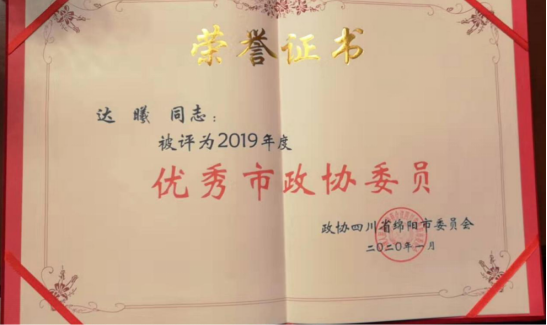 荣誉证书
达曦 同志：
被评为2019年度
优秀市政协委员
政协四川省绵阳市委员会
二〇二〇年一月